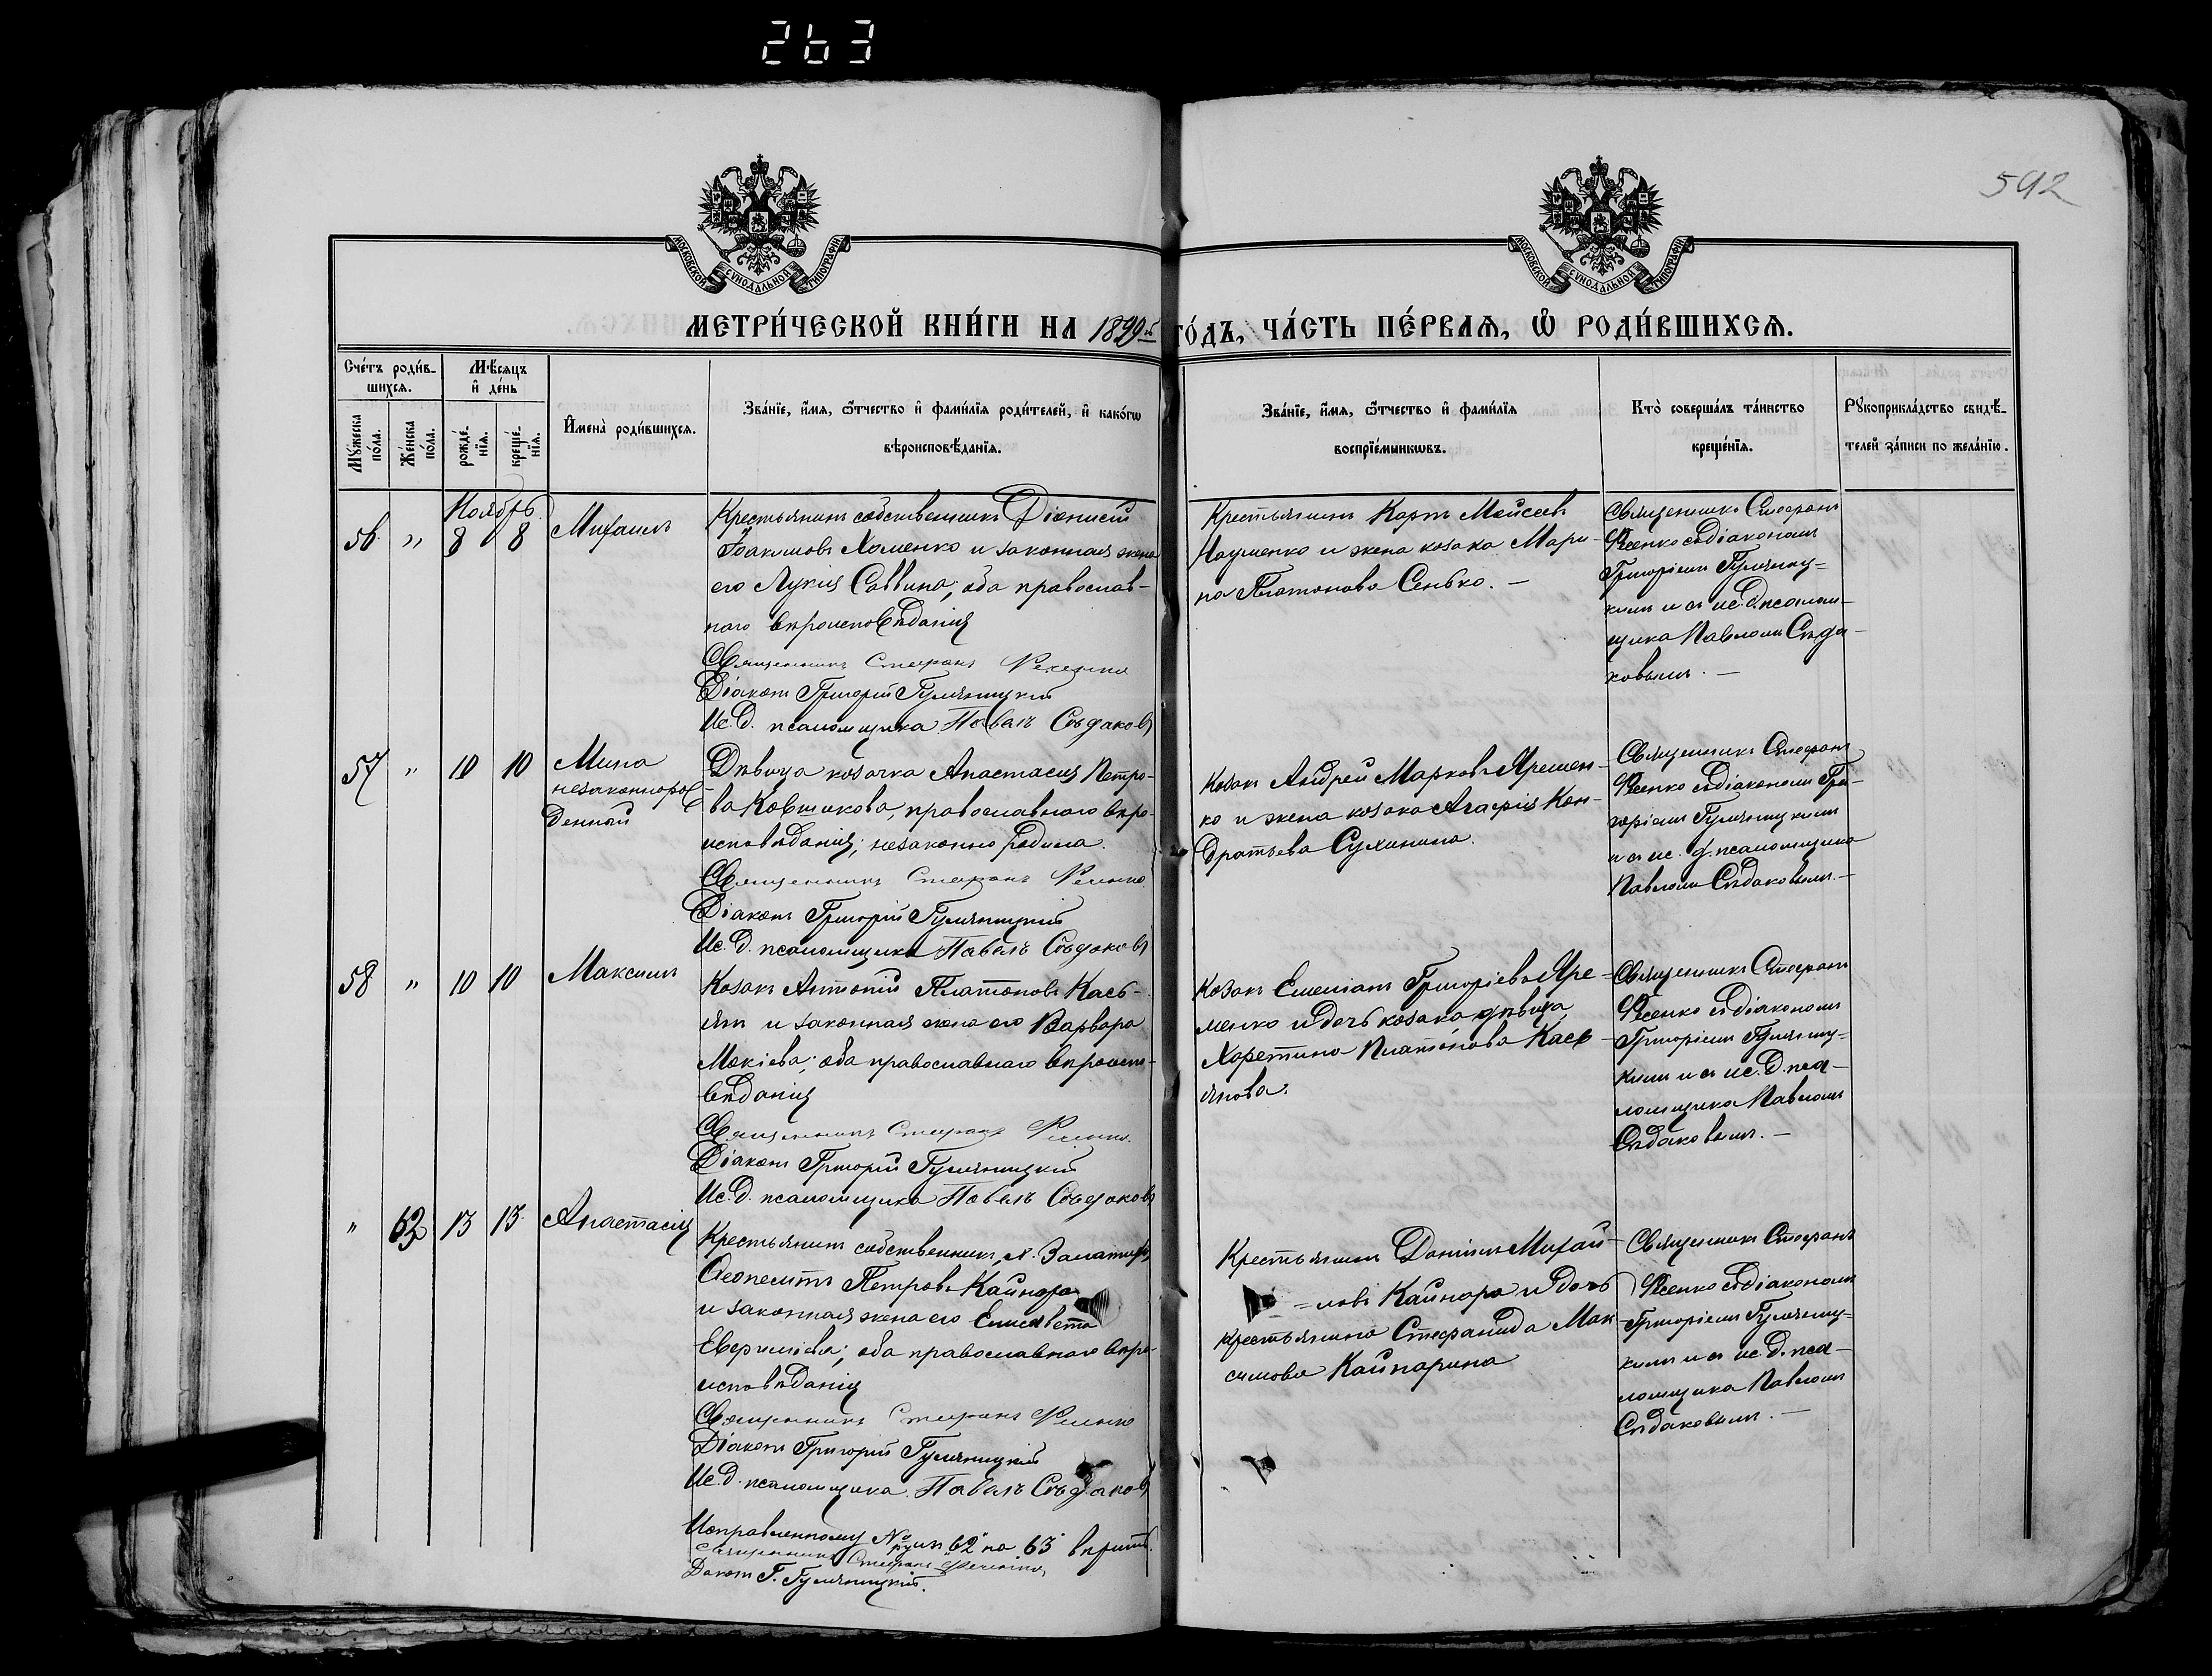 263
592
МОСКОВСКОЙ СѴНОДАЛЬНОЙ ТИПОГРАФІИ
МОСКОВСКОЙ СѴНОДАЛЬНОЙ ТИПОГРАФІИ
МЕТРИ́ЧЕСКОЙ КНИ́ГИ НА 1890й ГО́ДЪ, ЧА́СТЬ ПЕ́РВАЯ, Ѿ РОДИ́ВШИХСЯ.
Сче́тъ роди́в-
шихся.
Мꙋ́жеска по́ла.
Же́нска по́ла.
Мѣ́сяцъ и҆ де́нь
рожде́-нїя.
креще́-нїя.
И҆мена̀ роди́вшихся.
Зва́нїе, и҆́мя, ѻ҆́тчество и҆ фами́лїя роди́телей, и҆ како́гѡ
вѣроисповѣ́данїя.
Зва́нїе, и҆́мя, ѻ҆́тчество и҆ фами́лїя
воспрїе́мникѡвъ.
Кто̀ соверша́лъ та́инство
креще́нїя.
Рꙋкоприкла́дство свидѣ́-
телей за́писи по жела́нїю.
Ноябрь
56 " 8 8 Михаилъ
Крестьянинъ собственникъ Діонисій
Іоакимовъ Хоменко и законная жена
его Лукія Саввина; оба православ-
наго вѣроисповѣданія
Священникъ Стефанъ
Діаконъ Григорій Гуляницкій
Ис. д. псаломщика Павелъ Сѣдаковъ
Крестьянинъ Карпъ Моисеевъ
Науменко и жена козака Мари-
на Платонова Сенько. –
Священникъ Стефанъ
съ діакономъ
Григоріемъ Гуляниц-
кимъ и съ ис. д. псалом-
щика Павломъ Сѣда-
ковымъ. –
57 " 10 10 Мина
незаконнорож-
денный
Дѣвица козачка Анастасія Петро-
ва Ковшикова, православнаго вѣро-
исповѣданія; незаконно родила.
Священникъ Стефанъ
Діаконъ Григорій Гуляницкій
Ис. д. псаломщика Павелъ Сѣдаковъ
Козакъ Андрей Марковъ Яремен-
ко и жена козака Агафія Кон-
дратьева Сухинина.
Священникъ Стефанъ
съ діакономъ Гри-
горіемъ Гуляницкимъ
и съ ис. д. псаломщика
Павломъ Сѣдаковымъ. –
58 " 10 10 Максимъ
Козакъ Антоній Платоновъ Кась-
янъ и законная жена его Варвара
Мокіева; оба православнаго вѣроиспо-
вѣданія
Священникъ Стефанъ
Діаконъ Григорій Гуляницкій
Ис. д. псаломщика Павелъ Сѣдаковъ
Козакъ Емеліанъ Григорьевъ Яре-
менко и дочь козака дѣвица
Харетина Платонова Кась-
янова.
Священникъ Стефанъ
съ діакономъ
Григоріемъ Гуляниц-
кимъ и съ ис. д. пса-
ломщика Павломъ
Сѣдаковымъ. –
" 63 13 13 Анастасія
Крестьянинъ собственникъ
Ѳеопемптъ Петровъ Кайнара
и законная жена его Елисавета
оба православнаго вѣро-
исповѣданія
Священникъ Стефанъ
Діаконъ Григорій Гуляницкій
Ис. д. псаломщика Павелъ Сѣдаковъ
Крестьянинъ Даніилъ Михай-
ловъ Кайнара и дочь
крестьянина Стефанида Мак-
симова Кайнарина
Священникъ Стефанъ
съ діакономъ
Григоріемъ Гуляниц-
кимъ и съ ис. д. пса-
ломщика Павломъ
Сѣдаковымъ. –
Исправленному № съ 62 на 63 вѣрить.
Священникъ Стефанъ
Діаконъ Г. Гуляницкій.